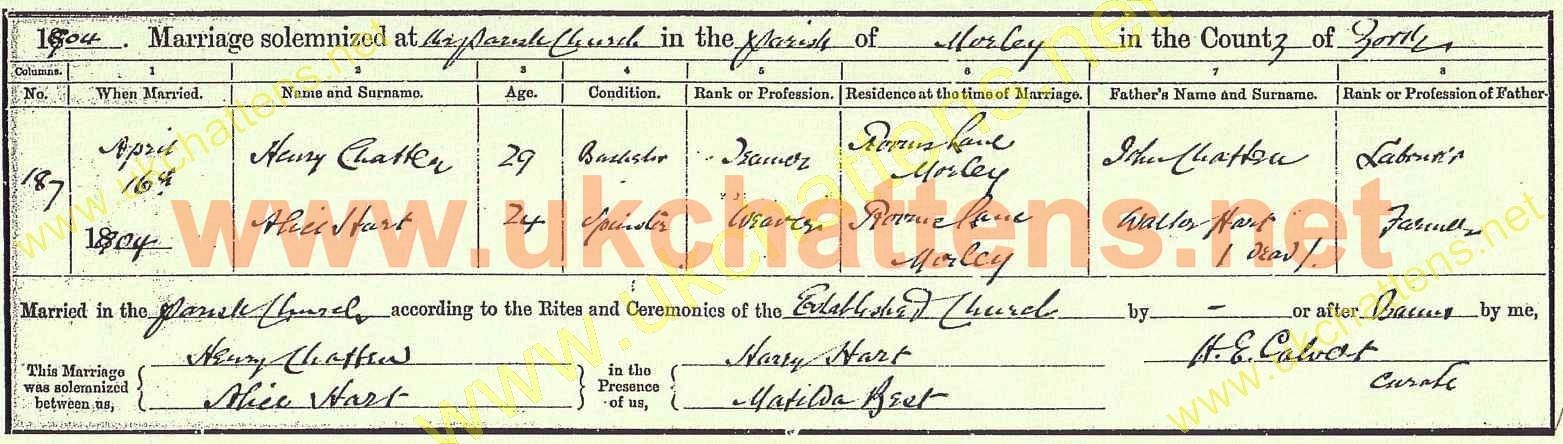 1904. Marriage solemnized at the Parish Church in the Parish of Morley in the County of York
Columns. 1 2 3 4 5 6 7 8
No. When Married. Name and Surname. Age. Condition. Rank or Profession. Residence at the time of Marriage. Father's Name and Surname. Rank or Profession of Father
187 April 16th 1904 Henry Chatten 29 Bachelor Rooms Lane Morley John Chatten Labourer
Alice Hart 24 Spinster Weaver Rooms Lane Morley Walter Hart (dead) Farmer
Married in the Parish Church according to the Rites and Ceremonies of the Established Church by - or after Banns by me,
This Marriage was solemnized between us, Henry Chatten Alice Hart in the Presence of us, Harry Hart Matilda Best H. E. Calvert Curate
www.ukchattens.net
www.ukchattens.net
www.ukchattens.net
www.ukchattens.net